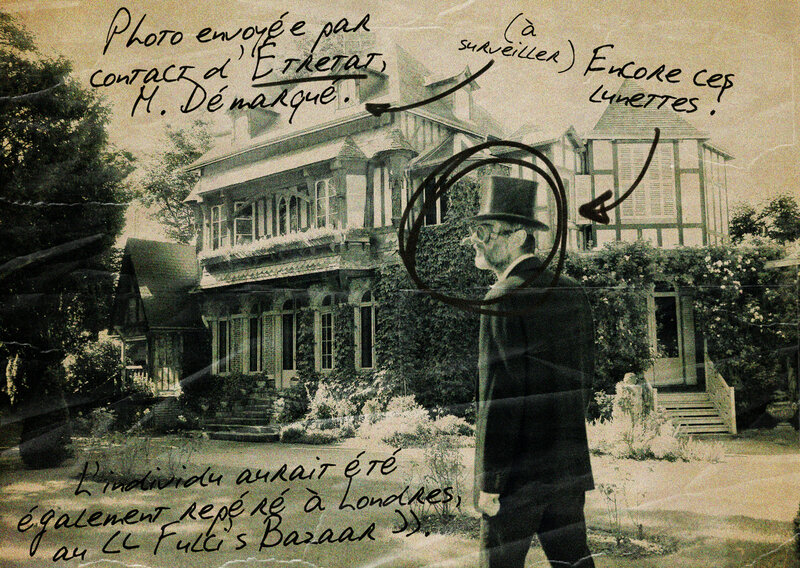 Photo envoyée par
contact d'Étretat,
M. Démarqué.
(à
surveiller)
Encore ces
lunettes.
L'individu aurait été
également repéré à Londres,
au « Fulci's Bazaar ».